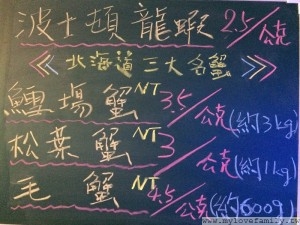 波士頓龍蝦 2.5/公克
《北海道三大名蟹》
鱈場蟹 NT 3.5/公克(約3kg)
松葉蟹 NT 3/公克(約1kg)
毛蟹 NT 4.5/公克(約600g)
www.mylovefamily.tw